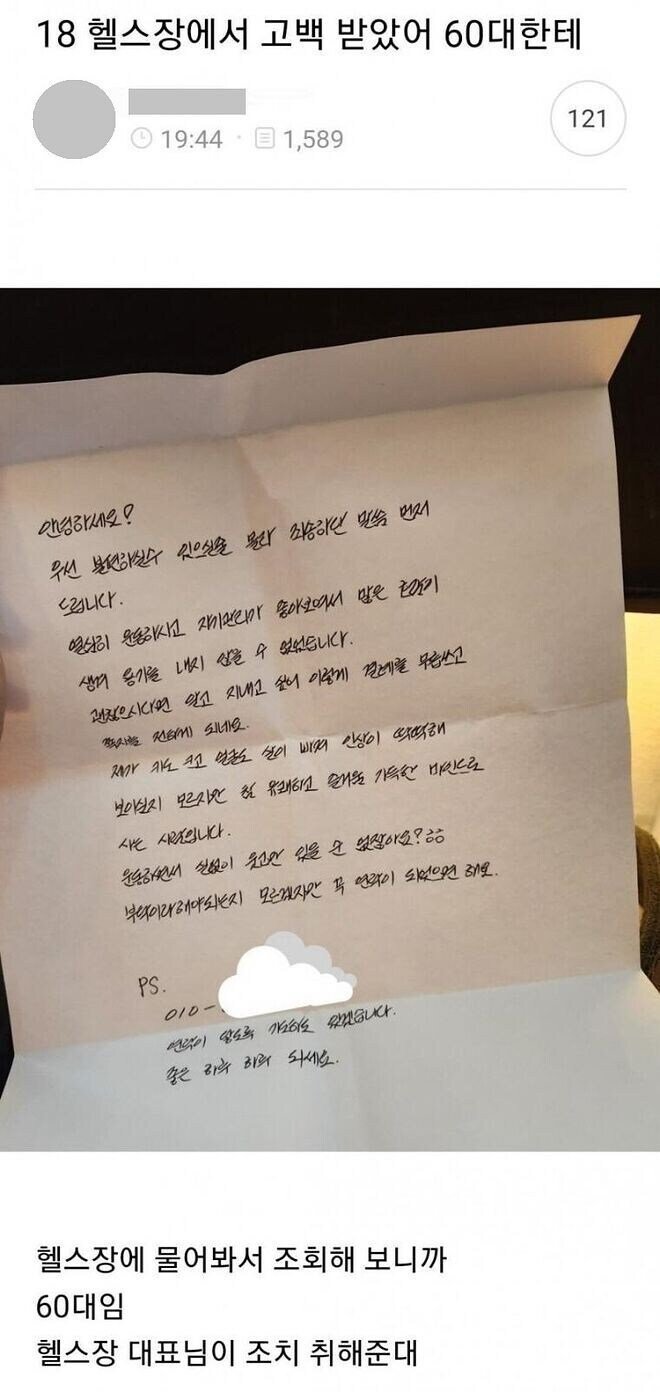 18 헬스장에서 고백 받았어 60대한테
19:44 · 1,589
121
안녕하세요?
우선 불편하실수 있으실을 몰라 죄송하단 말씀 먼저
드립니다.
열심히 운동하시고 자기관리가 좋아보여서 많은
생겨 용기를 내지 않을 수 없었습니다.
괜찮으시다면 알고 지내고 싶어 이렇게 결례를 무릅쓰고
쪽지를 전하게 되네요.
제가 키도 크고 얼굴도 살이 빠져 인상이 딱딱해
보이실지 모르지만 참 유쾌하고 즐거움 가득한 마인드로
사는 사람입니다.
운동하면서 실없이 웃고만 있을 순 없잖아요?
부탁이라해야되는지 모르겠지만 꼭 연락이 되었으면 해요.
PS.
010-
연락이 닿도록 기도하고 있겠습니다.
좋은 하루 하루 되세요.
헬스장에 물어봐서 조회해 보니까
60대임
헬스장 대표님이 조치 취해준대